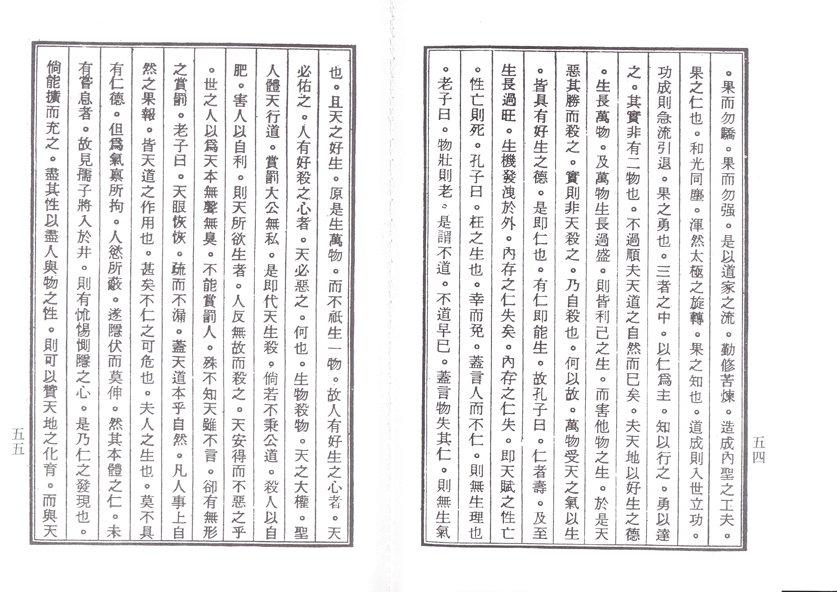 。果而勿驕。果而勿强。是以道家之流。勤修苦煉。造成內聖之工夫。
果之仁也。和光同塵。渾然太極之旋轉。果之知也。道成則入世立功。
功成則急流引退。果之勇也。三者之中。以仁爲主。知以行之。勇以達
之。其實非有二物也。不過順夫天道之自然而已矣。夫天地以好生之德
。生長萬物。及萬物生長過盛。則皆利己之生。而害他物之生。於是天
惡其勝而殺之。實則非天殺之。乃自殺也。何以故。萬物受天之氣以生
。皆具有好生之德。是即仁也。有仁即能生。故孔子曰。仁者壽。及至
生長過旺。生機發洩於外。內存之仁失矣。內存之仁失。即天賦之性亡
。性亡則死。孔子曰。枉之生也。幸而免。蓋言人而不仁。則無生理也
。老子曰。物壯則老。是謂不道。不道早已。蓋言物失其仁。則無生氣
五四
也。且天之好生。原是生萬物。而不祇生一物。故人有好生之心者。天
必佑之。人有好殺之心者。天必惡之。何也。生物殺物。天之大權。聖
人體天行道。賞罰大公無私。是即代天生殺。倘若不秉公道。殺人以自
肥。害人以自利。則天所欲生者。人反無故而殺之。天安得而不惡之乎
。世之人以爲天本無聲無臭。不能賞罰人。殊不知天雖不言。卻有無形
之賞罰。老子曰。天眼恢恢。疏而不漏。蓋天道本乎自然。凡人事上自
然之果報。皆天道之作用也。甚矣不仁之可危也。夫人之生也。莫不具
有仁德。但爲氣禀所拘。人慾所蔽。遂隱伏而莫伸。然其本體之仁。未
有嘗息者。故見孺子將入於井。則有怵惕惻隱之心。是乃仁之發現也。
倘能擴而充之。盡其性以盡人與物之性。則可以贊天地之化育。而與天
五五